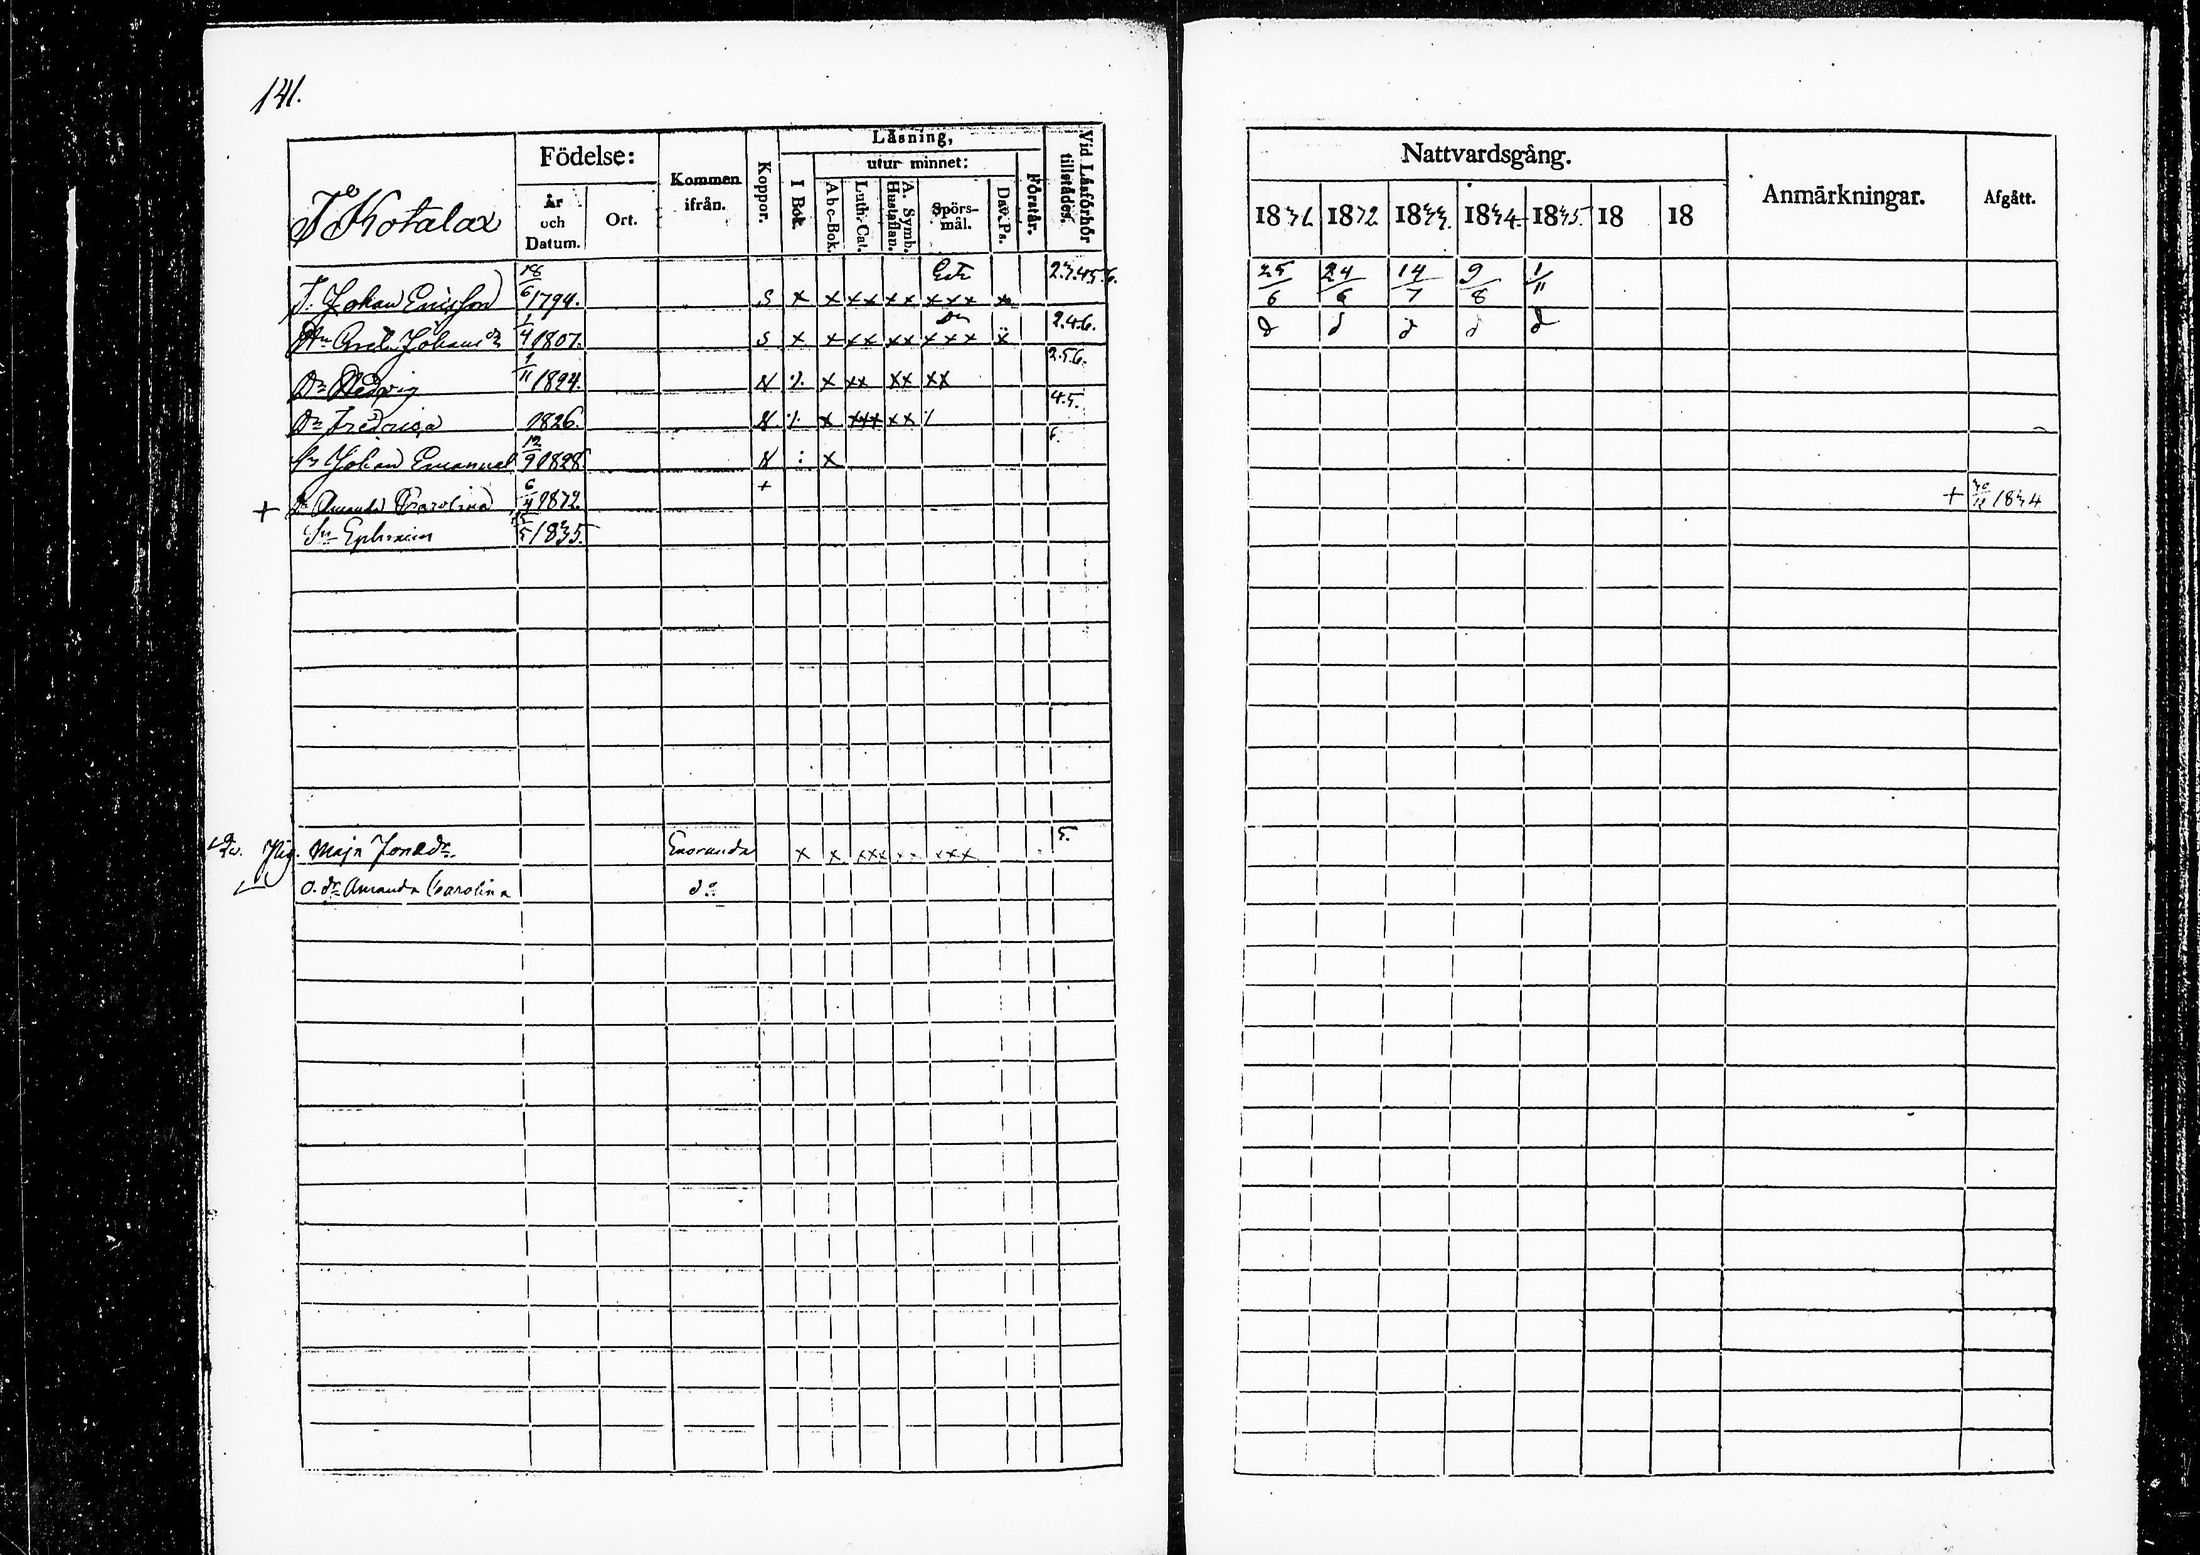 141.
Kotalax
Födelse:
År och Datum.
Ort.
Kommen ifrån.
Koppor.
Läsning,
I Bok.
utur minnet:
Abc-Bok.
Luth. Cat.
A. Symb. Hustaflan.
Spörs-mål.
Dav. Ps.
Förstår.
Vid Läsförhör tillstädes.
Nattvardsgång.
1831 1832 1833. 1834. 1835. 18 18
Anmärkningar.
Afgått.
T. Johan Ericsson 18/6 1794. S x x xx xx xxx x 25/6 24/6 14/7 9/8 1/11
Johansdr 1/4 1807. S x x xx xx xxx 2.4.6. d d d d d
Dr Hedvig 1/11 1824. N x xx xx xx 2.5.6.
Dr Fredrica 1826. N x xxx xx 4.5.
Sn Johan Emanuel 12/9 1828 N : x 6.
+ Dr Amanda Carolina 6/4 1832. + + 30/11 1834
Sn Ephraim 1835.
Maja Jonædr. x x xxx xx xxx 5.
o. dr Amanda Carolina do